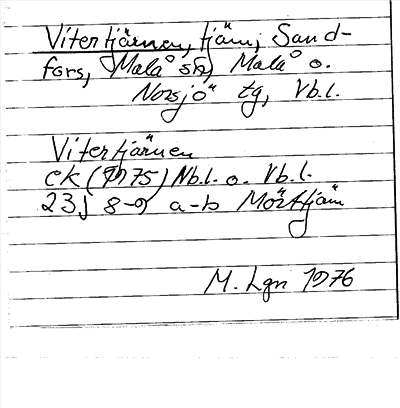 Vitertjärnen, tjärn, Sand-
fors, Malå sn, Malå o.
Norsjö tg, Vb.l.
Vitertjärnen
ek (1975) Nb.l. o. Vb.l.
23J 8-9 a-b Mörttjärn
M. Lgn 1976